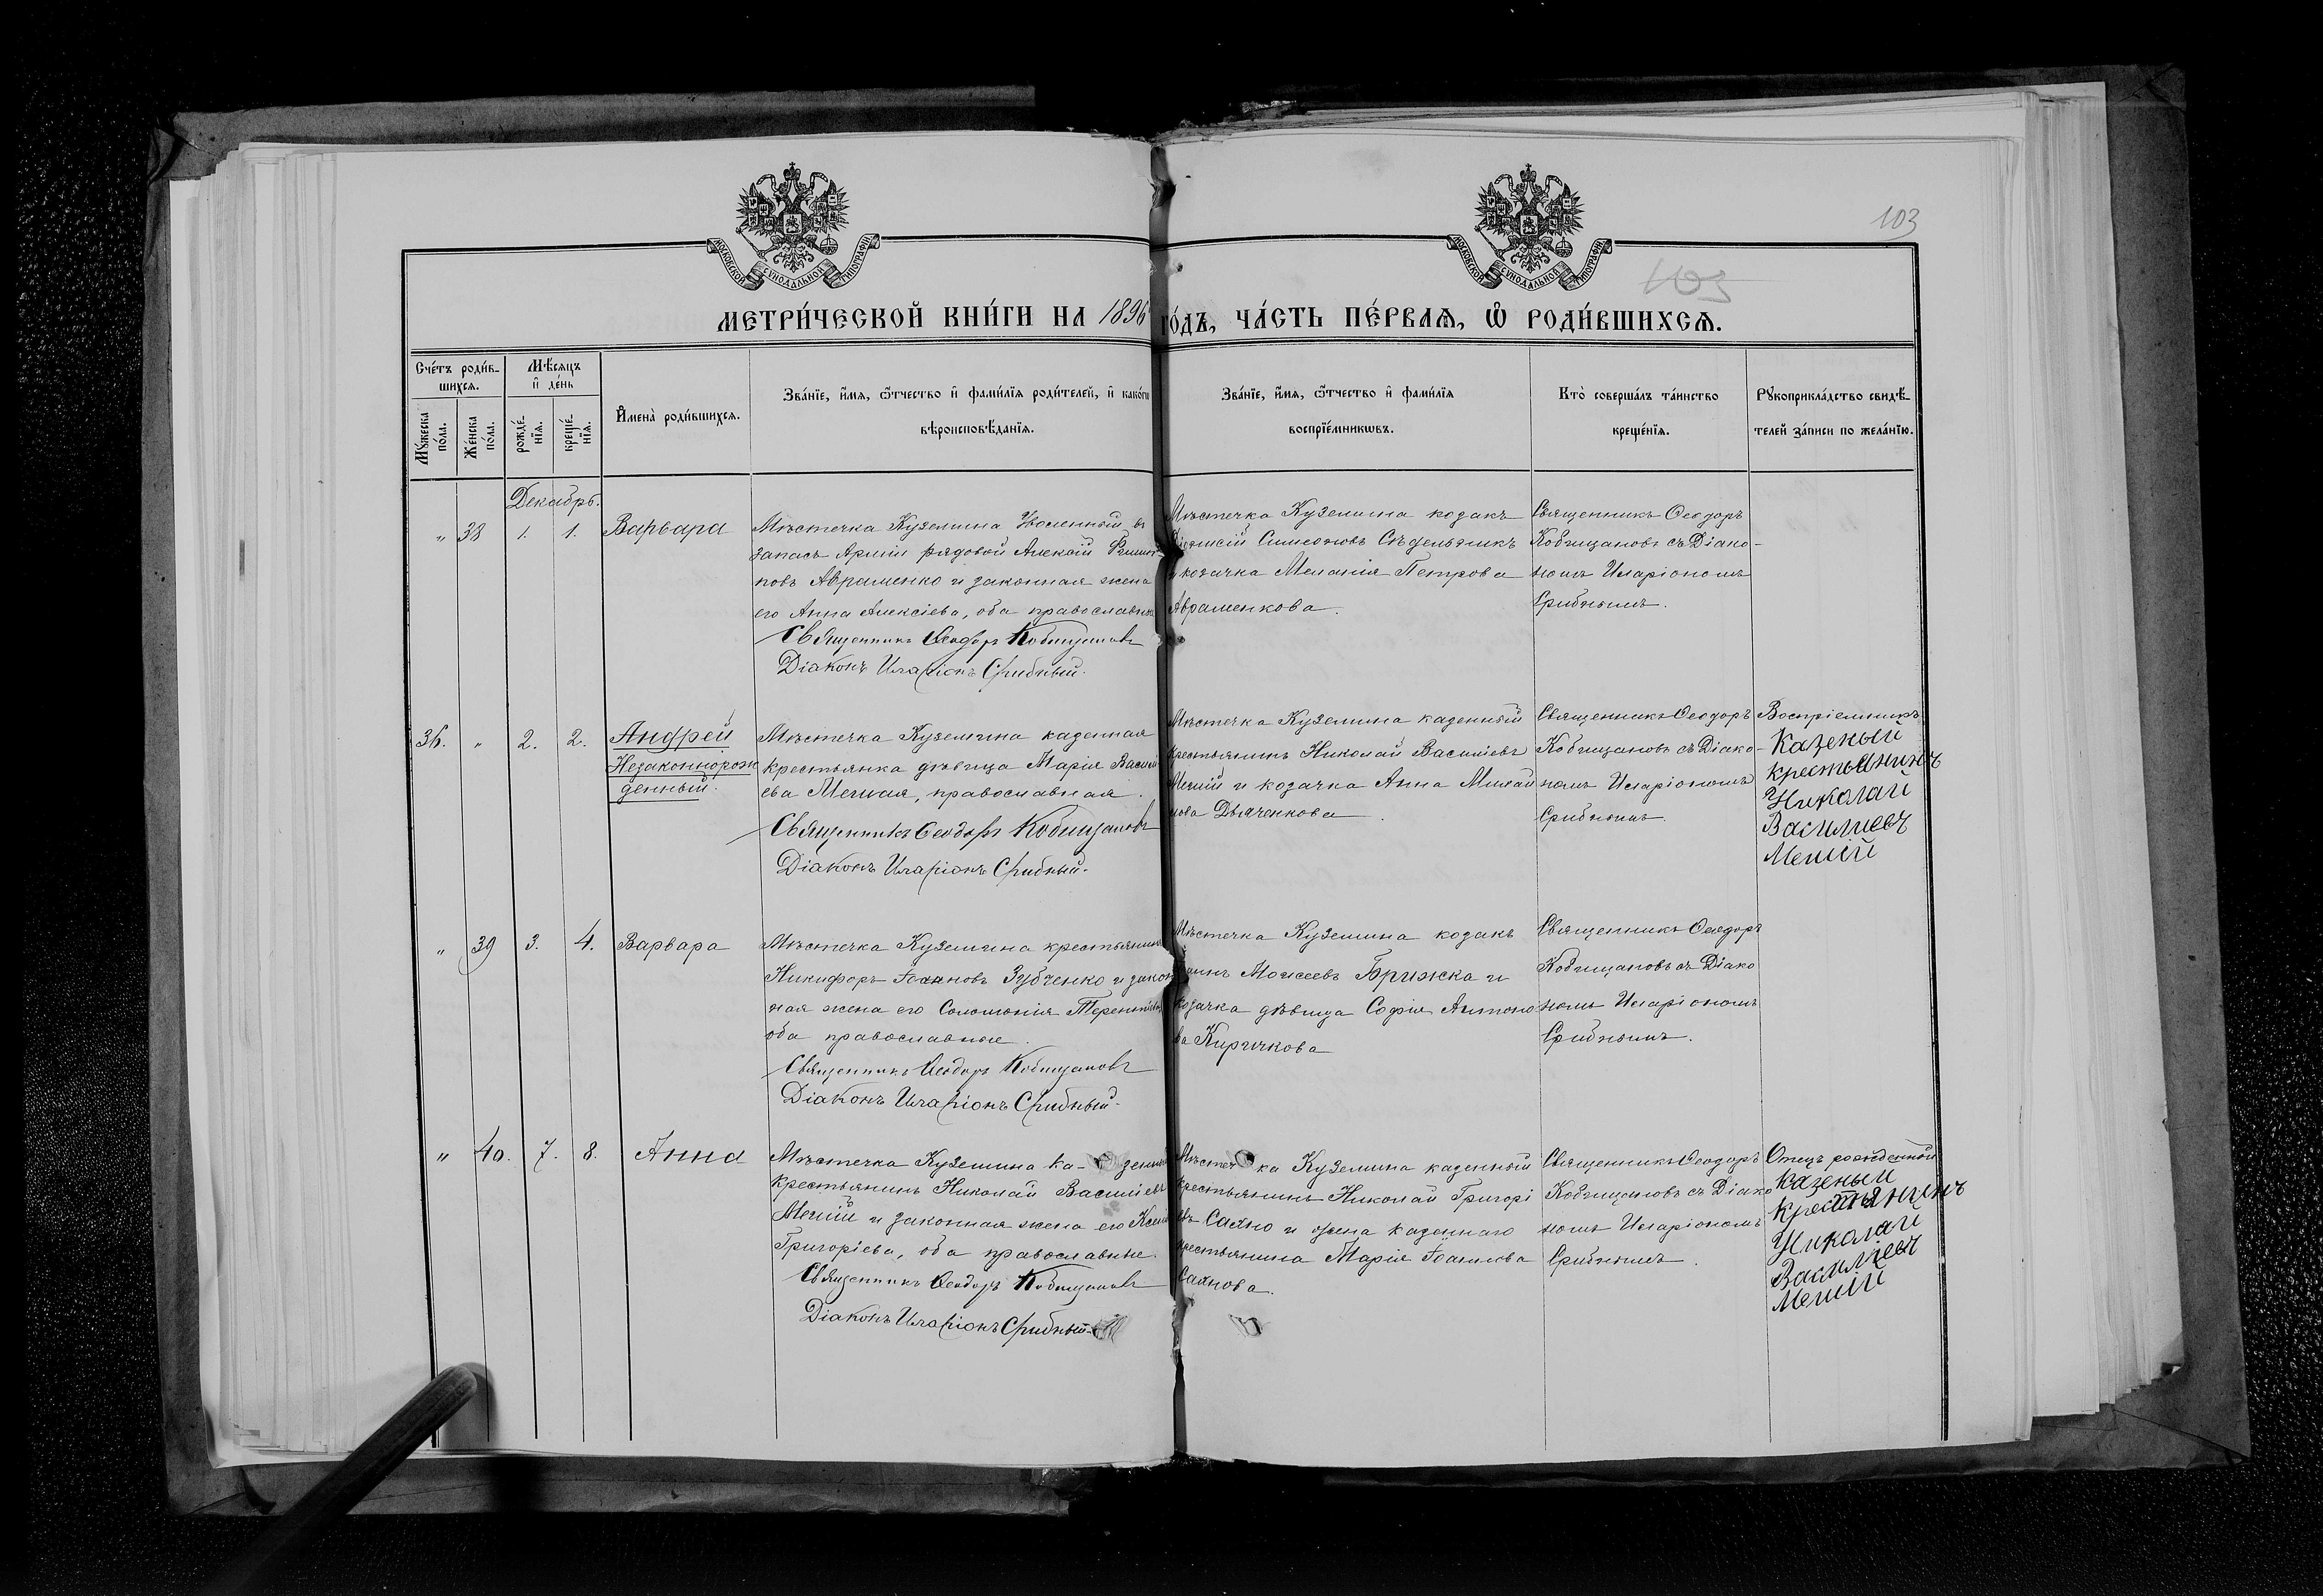 103
103
МОСКОВСКОЙ СѴНОДАЛЬНОЙ ТИПОГРАФІИ
МОСКОВСКОЙ СѴНОДАЛЬНОЙ ТИПОГРАФІИ
МЕТРИ́ЧЕСКОЙ КНИ́ГИ НА 1896 ГО́ДЪ, ЧА́СТЬ ПЕ́РВАѦ, Ѡ҆ РОДИ́ВШИХСѦ.
Сче́тъ роди́в-
шихсѧ.
Мꙋжеска
по́ла.
Же́нска
по́ла.
Мѣ́сѧцъ
и҆ де́нь
рожде́-
нїѧ.
креще́-
нїѧ.
И҆мена̀ роди́вшихсѧ.
Зва́нїе, и҆́мѧ, ѻ҆́тчество и҆ фами́лїѧ роди́телей, и҆ како́гѡ
вѣроисповѣ́данїѧ.
Зва́нїе, и҆́мѧ, ѻ҆́тчество и҆ фами́лїѧ
воспрїе́мникѡвъ.
Кто̀ соверша́лъ та́инство
креще́нїѧ.
Рꙋкоприкла́дство свидѣ́-
телей за́писи по жела́нїю.
Декабрь.
„ 38 1. 1. Варвара
Мѣстечка Куземина Уволенный въ
запасъ Арміи рядовой Алексій
повъ Авраменко и законная жена
его Анна Алексіева, оба православные
Священникъ Ѳеодоръ Кобищановъ
Діаконъ Иларіонъ Срибный.
Мѣстечка Куземина козакъ
Діонисій Симеоновъ Сѣдельникъ
и козачка Меланія Петрова
Авраменкова.
Священникъ Ѳеодоръ
Кобищановъ съ Діако-
номъ Иларіономъ
Срибнымъ.
36. „ 2. 2. Андрей
Незаконнорож
денный.
Мѣстечка Куземина казенная
крестьянка дѣвица Марія Васили
ева Мечная, православная.
Священникъ Ѳеодоръ Кобищановъ
Діаконъ Иларіонъ Срибный.
Мѣстечка Куземина казенный
крестьянинъ Николай Василіевъ
и козачка Анна Михай
лова Дьяченкова.
Священникъ Ѳеодоръ
Кобищановъ съ Діако-
номъ Иларіономъ
Срибнымъ.
Воспріемникъ
Казеный
крестьянинъ
Николай
Василиевъ
„ 39 3. 4. Варвара
Мѣстечка Куземина крестьянинъ
Никифоръ Іоанновъ Зубченко и закон
ная жена его Соломонія Терентіева
оба православные.
Священникъ Ѳеодоръ Кобищановъ
Діаконъ Иларіонъ Срибный.
Мѣстечка Куземина козакъ
Моисеевъ Брижка и
козачка дѣвица Софія Антоно
ва Киричкова
Священникъ Ѳеодоръ
Кобищановъ съ Діако
номъ Иларіономъ
Срибнымъ.
„ 40. 7. 8. Анна
Мѣстечка Куземина ка- зенный
крестьянинъ Николай Василіевъ
и законная жена его
Григоріева, оба православные.
Священникъ Ѳеодоръ Кобищановъ
Діаконъ Иларіонъ Срибный.
Мѣстеч ка Куземина казенный
крестьянинъ Николай Григорі
евъ Сахно и жена казеннаго
крестьянина Марія Іоаннова
Сахнова.
Священникъ Ѳеодоръ
Кобищановъ съ Діако
номъ Иларіономъ
Срибнымъ.
Отецъ рожденной
казеный
крестьянинъ
Николай
Василіевъ